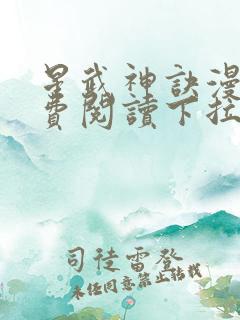 星武神訣漫
費閱讀下拉
司徒雷登
未经同意禁止转载